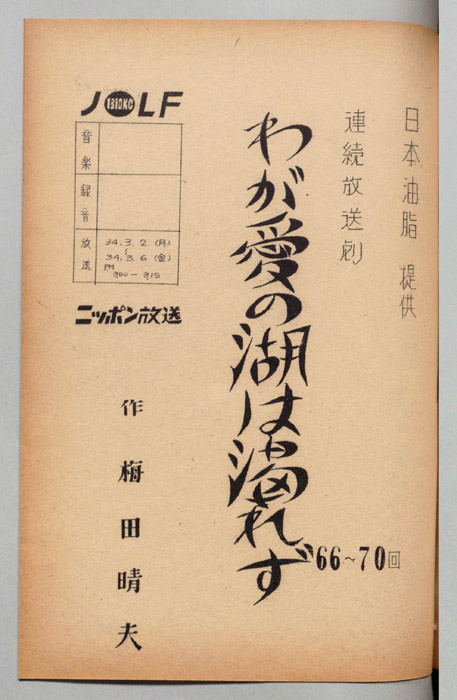 日本油脂 提供
連続放送劇
わが愛の湖は涸れず
66~70回
JOLF
1310KC
音楽
録音
放送
34.3.2(月)
34.3.6(金)
PM
300-315
ニッポン放送
作 梅田晴夫